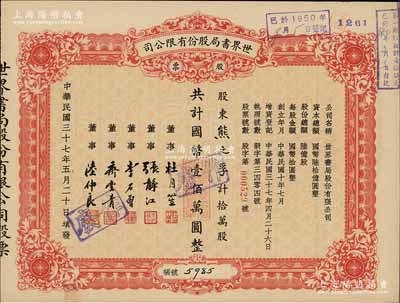 上海陽明拍賣
巳於1950年
1261
世界書局股份有限公司
股票
公司名稱 世界書局股份有限公司
資本總額 國幣拾億圓整
股份總額 陸億股
每股金額 國幣拾圓整
創立年月 中華民國十年七月
增資登記 中華民國三十七年四月二十六日
執照號數 新字第三四零四號
股票號數 股字第000529號
股東熊 孚計拾萬股
共計國幣壹佰萬圓整
董事 杜月笙
董事 張靜江
董事 李石曾
董事 齊雲青
董事 陸仲良
中華民國三十七年五月二十日填發
帳號 5985
世界書局股份有限公司股票